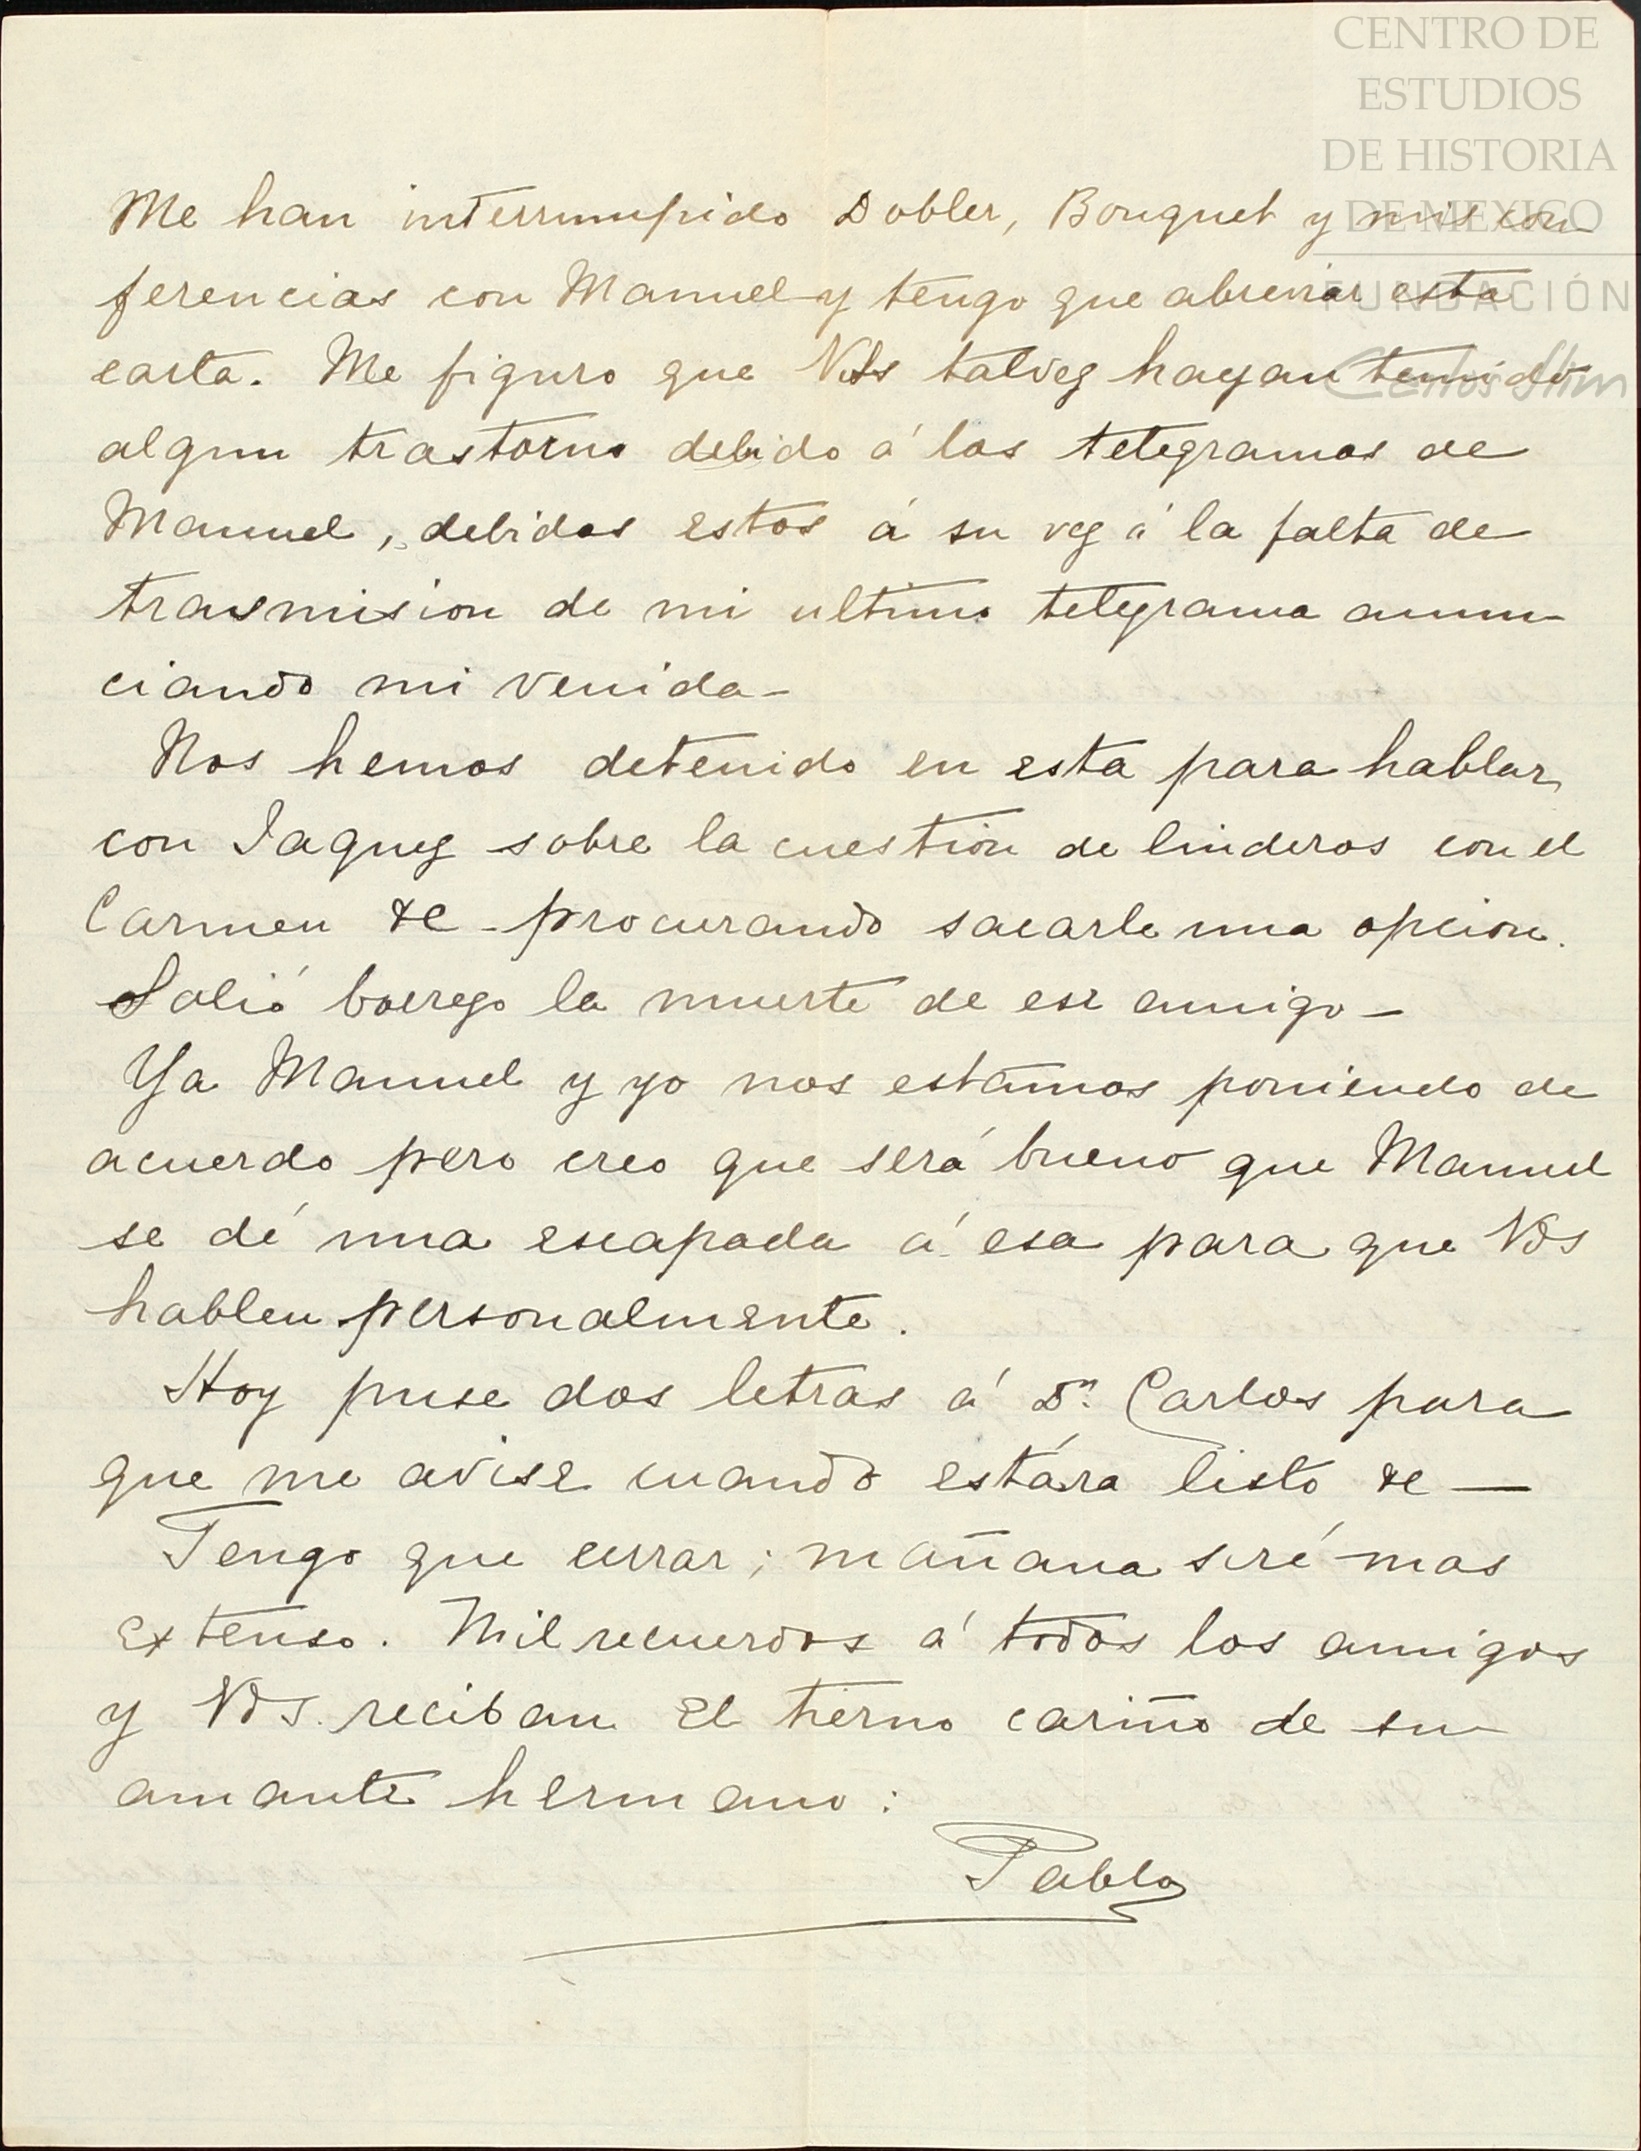 CENTRO DE
ESTUDIOS
DE HISTORIA
DE MEXICO
FUNDACIÓN
Carlos Slim
Me han interrumpido Dobler, Bouquet y mis con
ferencias con Manuel y tengo que abreviar esta
carta. Me figuro que Vds talvez hayan tenido
algun trastorno debido á los telegramas de
Manuel, debidos estos á su vez á la falta de
trasmision de mi ultimo telegrama anun-
ciando mi venida-
Nos hemos detenido en esta para hablar
con Jaquez sobre la cuestion de linderos con el
Carmen &c - procurando sacarle una opcion.
Salió borrego la muerte de ese amigo-
Ya Manuel y yo nos estamos poniendo de
acuerdo pero creo que será bueno que Manuel
se dé una escapada á esa para que Vds
hablen personalmente.
Hoy puse dos letras á Dn. Carlos para
que me avise cuando estára listo &c —
Tengo que cerrar; mañana seré mas
extenso. Mil recuerdos á todos los amigos
y Vds. reciban el tierno cariño de su
amante hermano:
Pablo